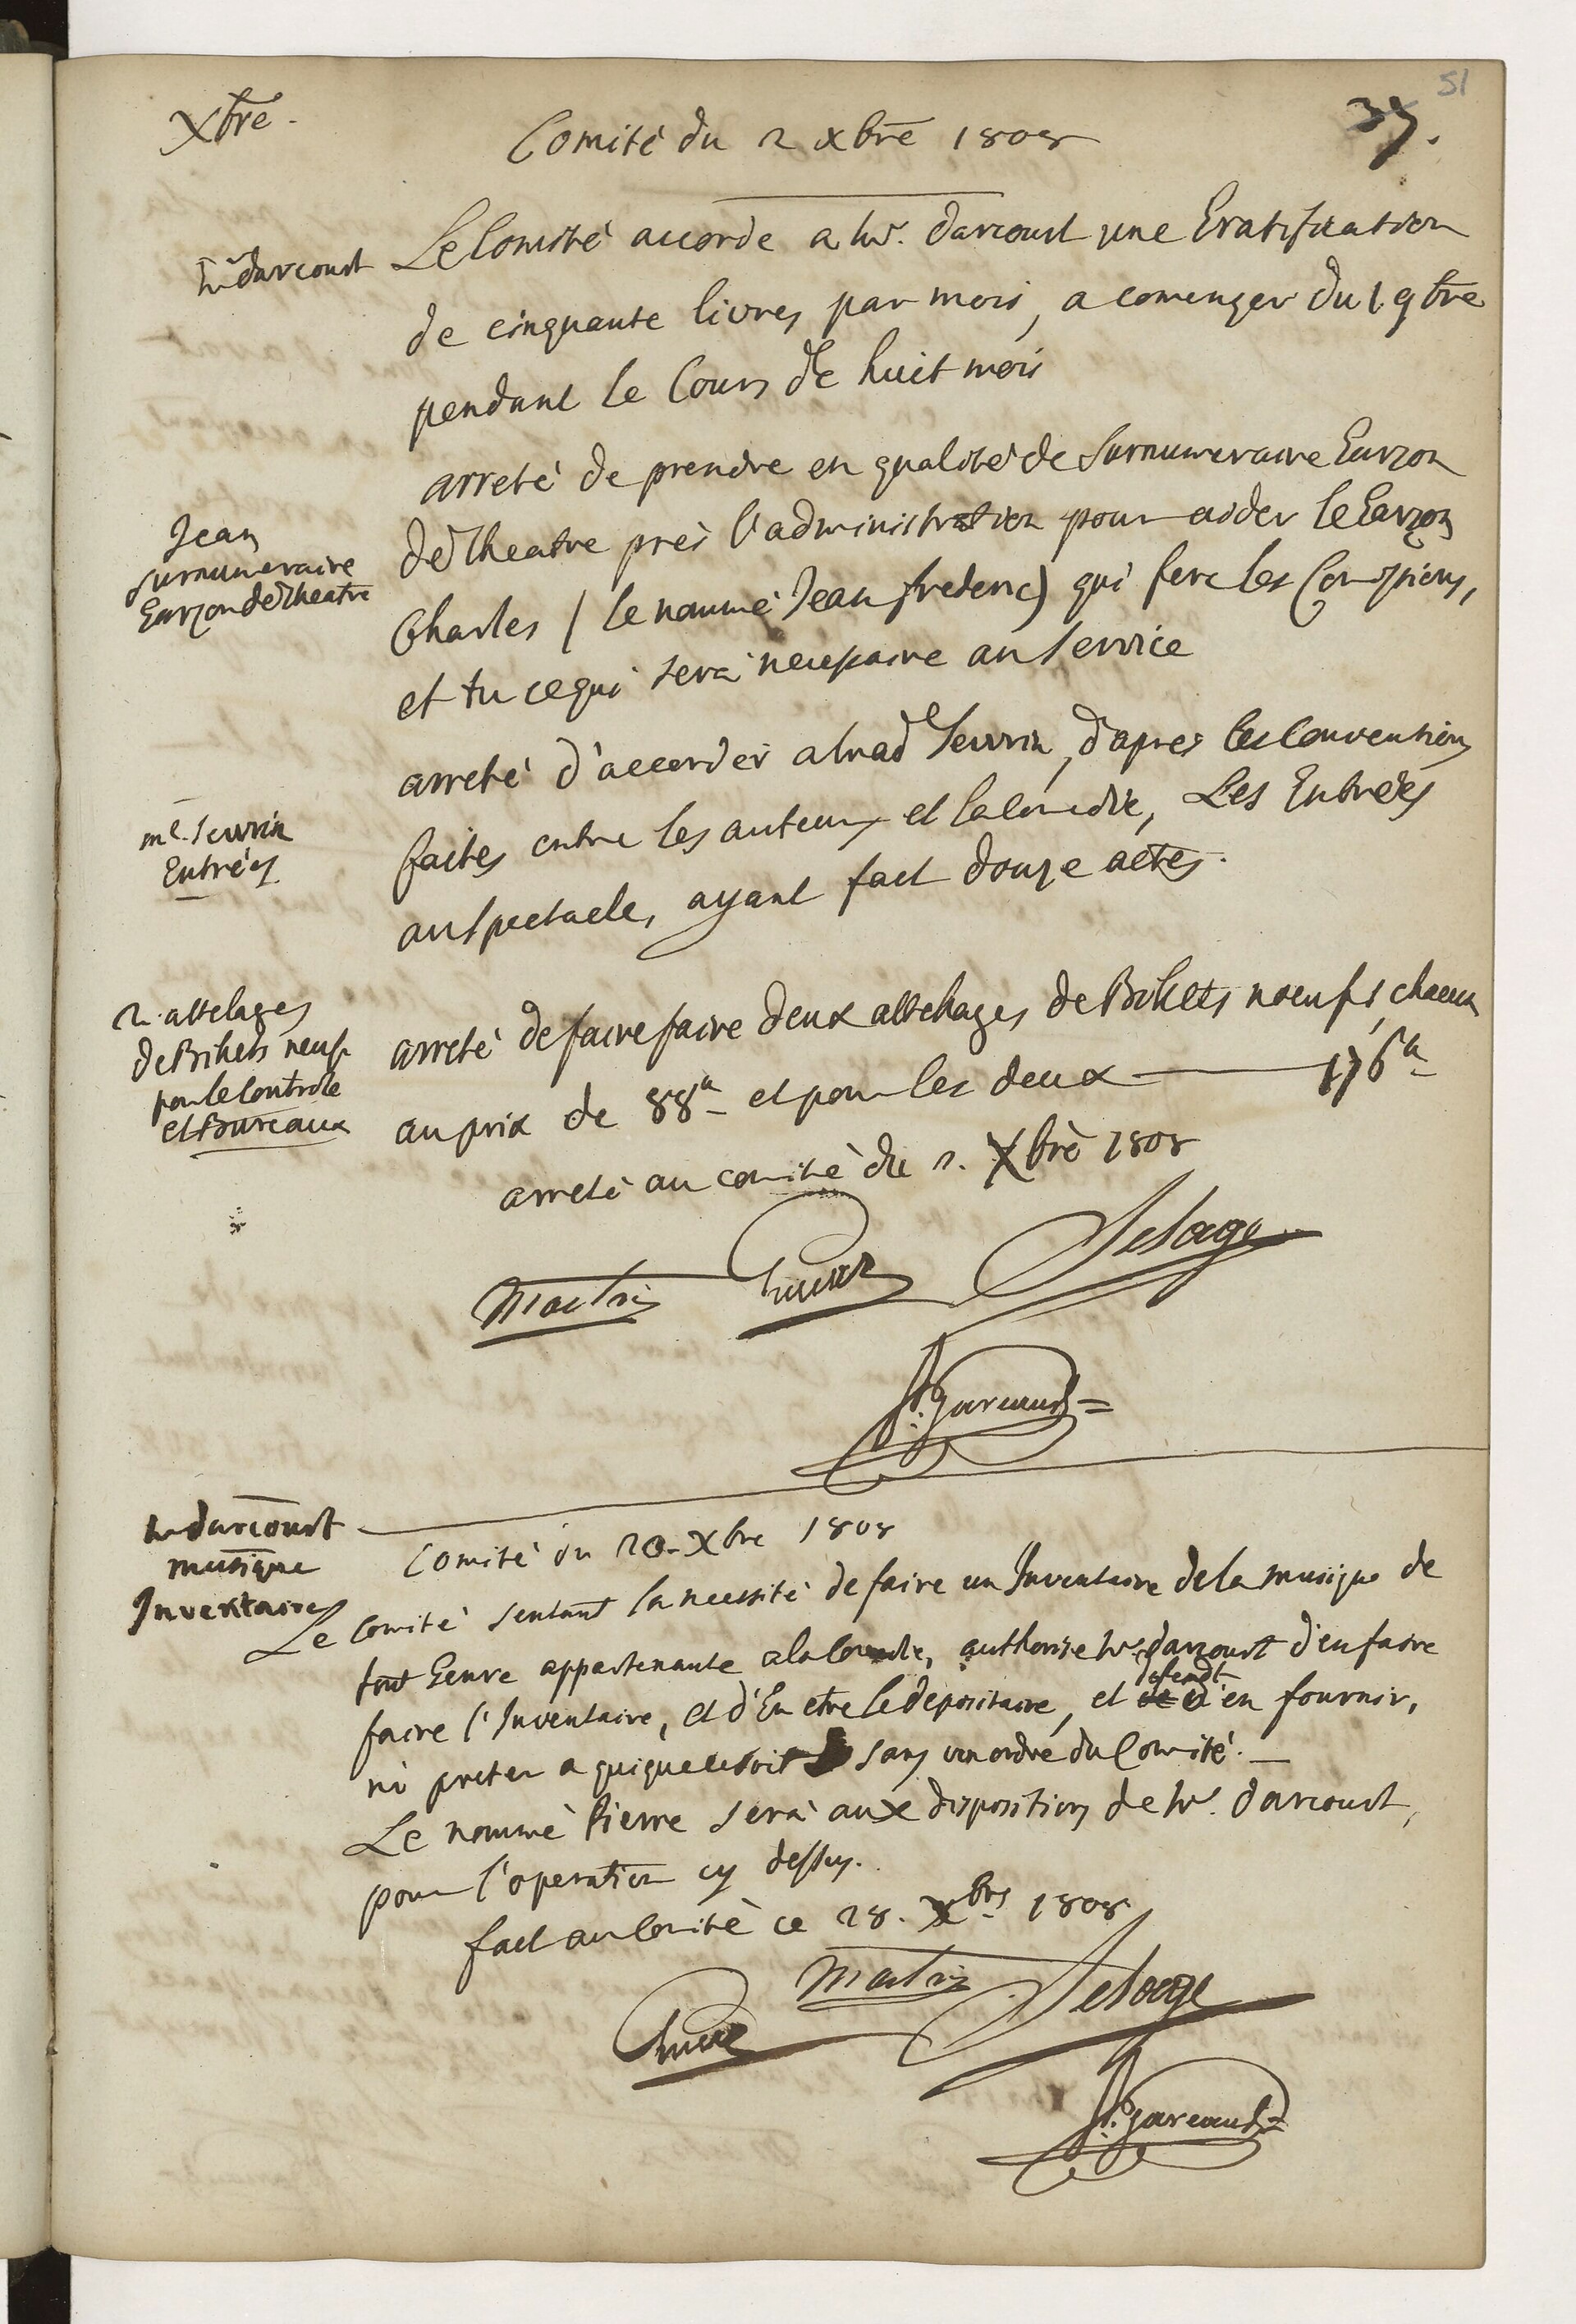 51
37.
Xbre.
Comité du 2 xbre 1808
mr darcourt
Le Comité accorde a mr. darcourt une Gratification
de cinquante livres par mois, a comenzer du 1 9bre
pendant le Cours de huit mois
Jean
surnumeraire
Garzon de Theatre
arreté de prendre en qualité de Surnumeraire Garzon
de Theatre près l'administration pour aider le Garzon
Charles / le nommé Jean frederic) qui fera les Comisions,
et tu ce qui sera necessaire au service
me. Sewrin
Entrées
arreté d'accorder a mad.e Sewrin, d'apres les Conventions
faites entre les auteurs et la Comedie, Les Entrées
au spectacle, ayant fait douze actes.
2. attelages
de Billets neufs
pour le Controle
et Bureaux
arreté de faire faire deux attelages de Billets noeufs, chacun
au prix de 88# et pour les deux — 176#
arreté au comité du 2. Xbre 1808
Martin
Lesage
St. Gavaudan
mr darcourt
musique
Inventaire
Comité du 20. Xbre 1808
Le Comité sentant la necessité de faire un Inventaire de la musique de
tout Genre appartenante a la Comedie, authorise mr. darcourt d'en faire
faire l'Inventaire, et d'En etre le depositaire, et defendt d'en fournir,
ni preter a qui que ce soit sans un ordre du Comité. —
Le nommé Pierre sera aux dispositions de mr. darcourt,
pour l'operation cy dessus.
fait au Comité ce 28. Xbre 1808
Martin
Lesage